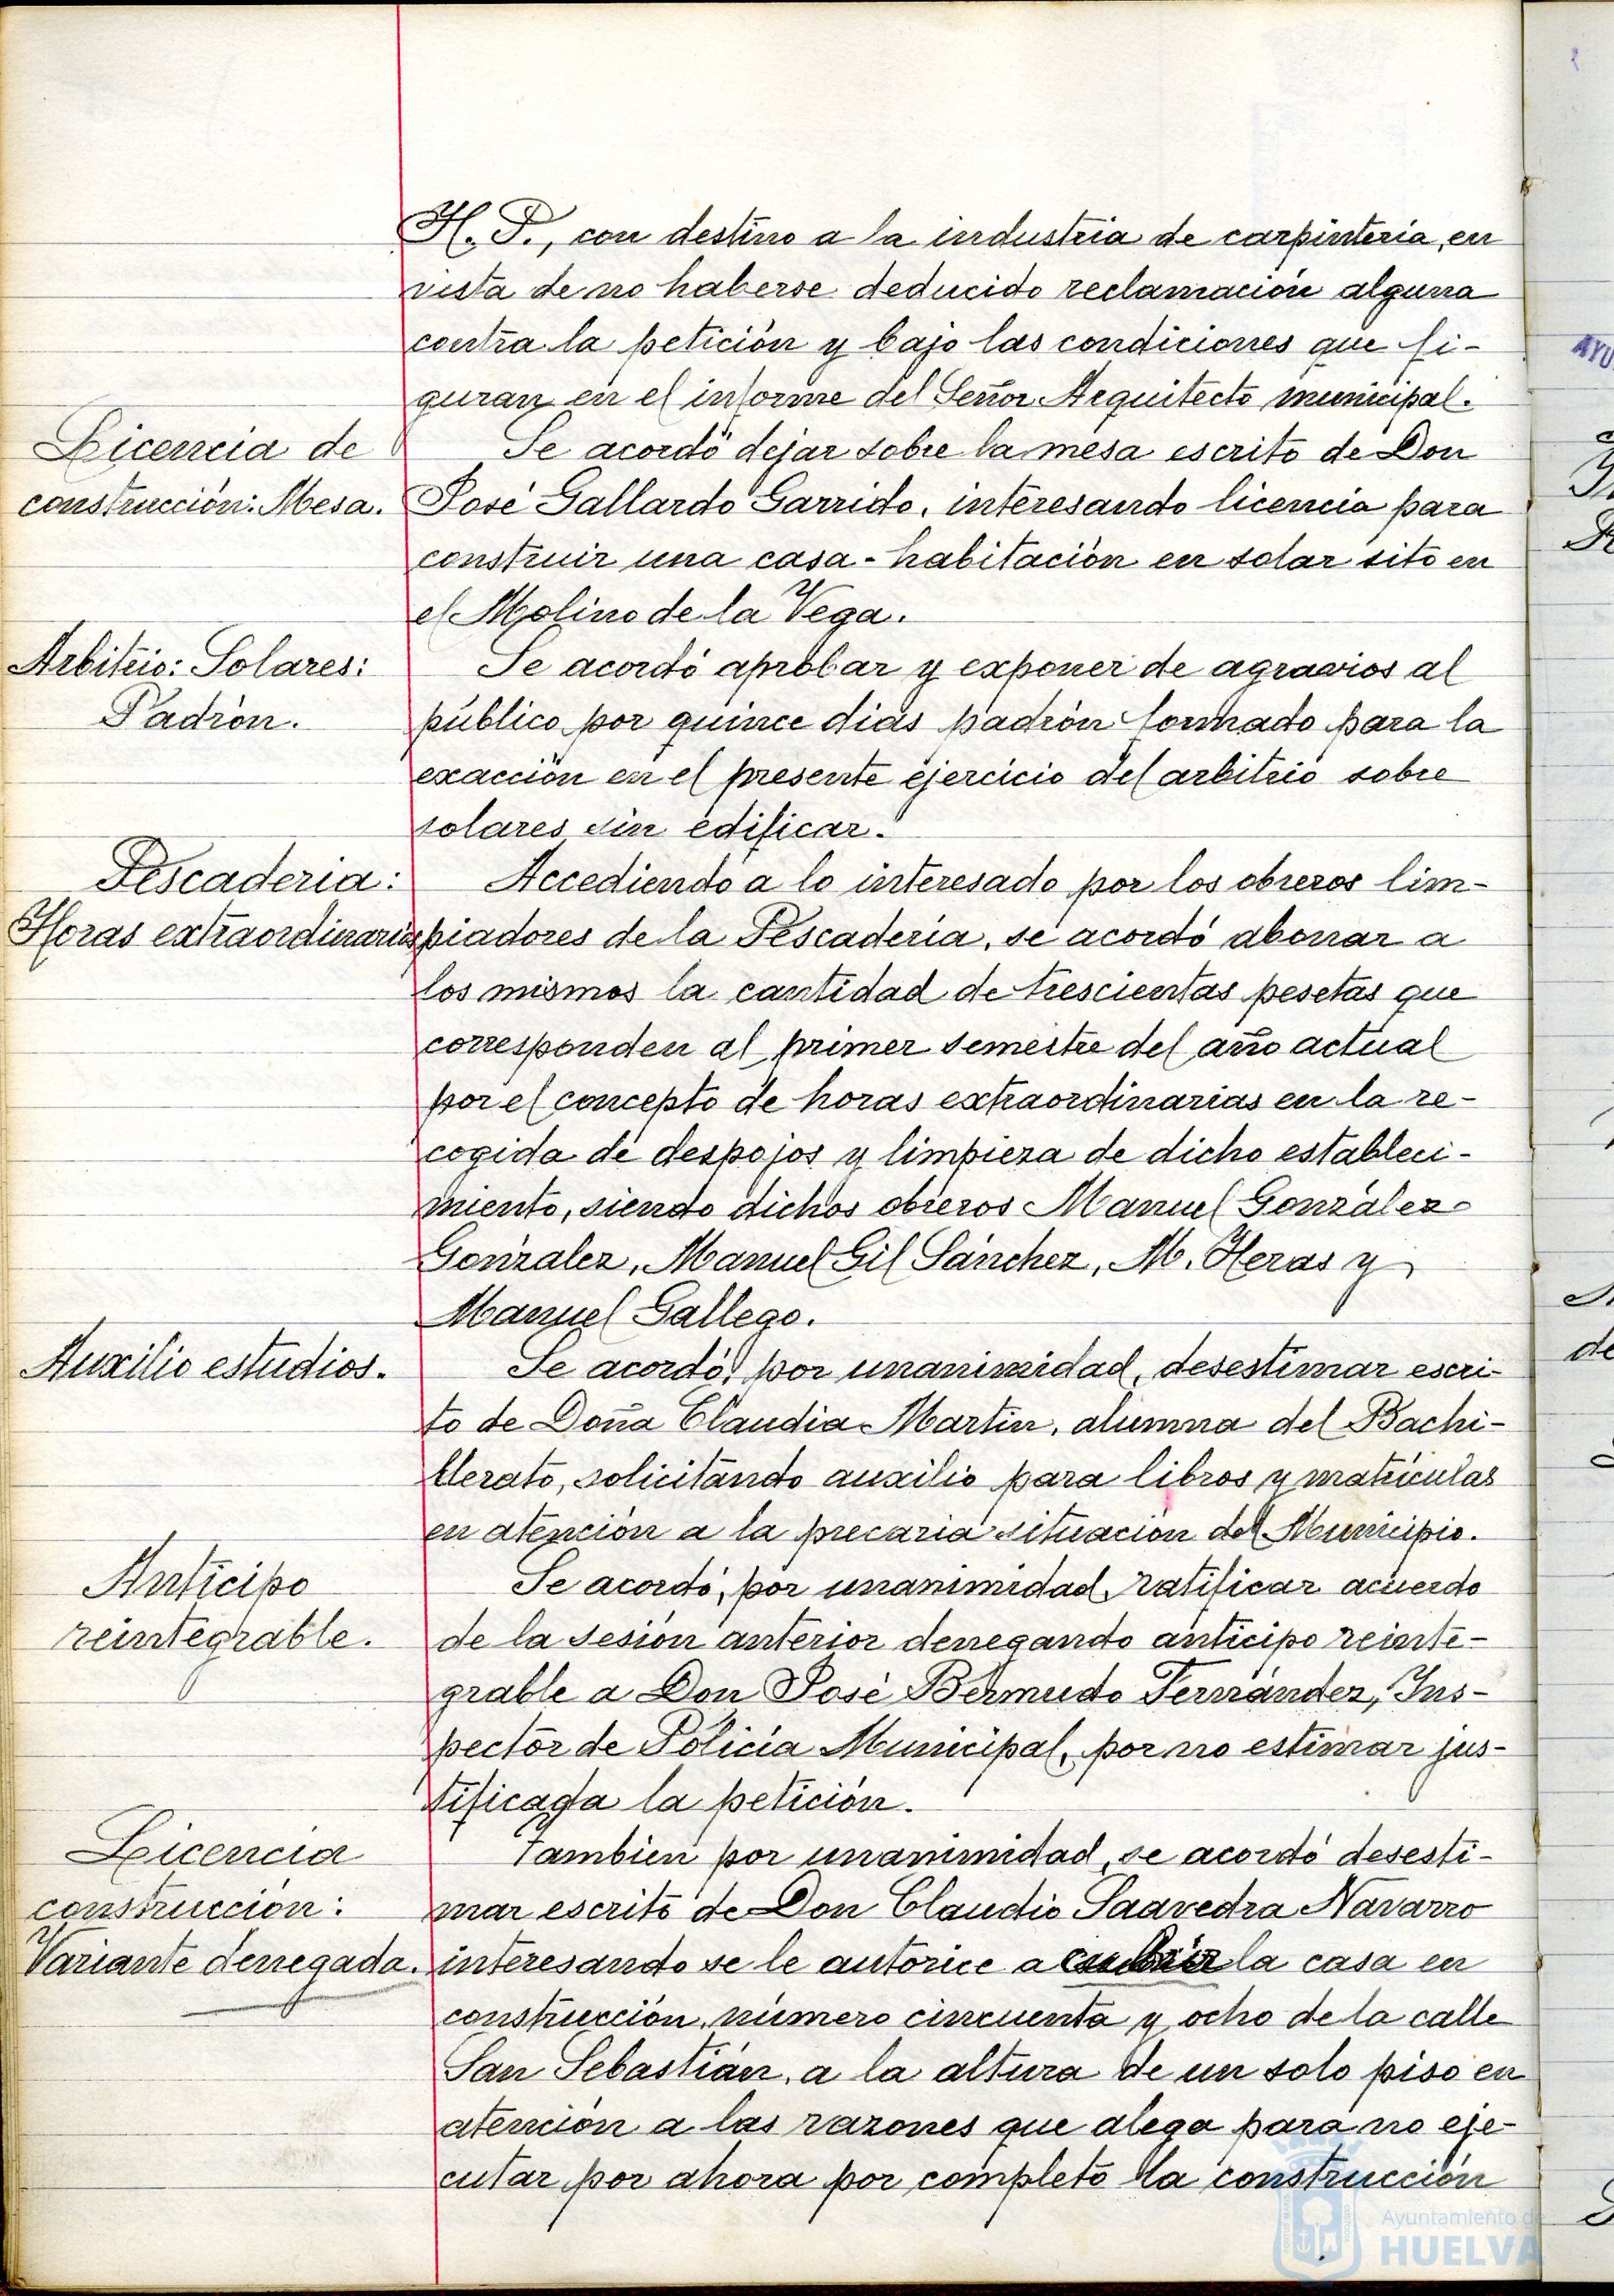 H. P., con destino a la industria de carpintería, en
vista de no haberse deducido reclamación alguna
contra la petición y bajo las condiciones que fi-
guran en el informe del Señor Arquitecto municipal.
Licencia de
construcción: Mesa.
Se acordó dejar sobre la mesa escrito de Don
José Gallardo Garrido, interesando licencia para
construir una casa-habitación en solar sito en
el Molino de la Vega.
Arbitrio: Solares:
Padrón.
Se acordó aprobar y exponer de agravios al
público por quince días padrón formado para la
exacción en el presente ejercicio del arbitrio sobre
solares sin edificar.
Pescaderia:
Horas extraordinarias
Accediendo a lo interesado por los obreros lim-
piadores de la Pescadería, se acordó abonar a
los mismos la cantidad de trescientas pesetas que
corresponden al primer semestre del año actual
por el concepto de horas extraordinarias en la re-
cogida de despojos y limpieza de dicho estableci-
miento, siendo dichos obreros Manuel González
González, Manuel Gil Sánchez, M. Heras y
Manuel Gallego.
Auxilio estudios.
Se acordó, por unanimidad, desestimar escri-
to de Doña Claudia Martín, alumna del Bachi-
llerato, solicitando auxilio para libros y matrículas
en atención a la precaria situación del Municipio.
Anticipo
reintegrable.
Se acordó, por unanimidad, ratificar acuerdo
de la sesión anterior denegando anticipo reinte-
grable a Don José Bermudo Fernández, Ins-
pector de Policía Municipal, por no estimar jus-
tificada la petición.
Licencia
construcción:
Variante denegada.
También por unanimidad, se acordó desesti-
mar escrito de Don Claudio Saavedra Navarro
interesando se le autorice a cubrir la casa en
construcción, número cincuenta y ocho de la calle
San Sebastián, a la altura de un solo piso en
atención a las razones que alega para no eje-
cutar por ahora por completo la construcción
Ayuntamiento de
HUELVA